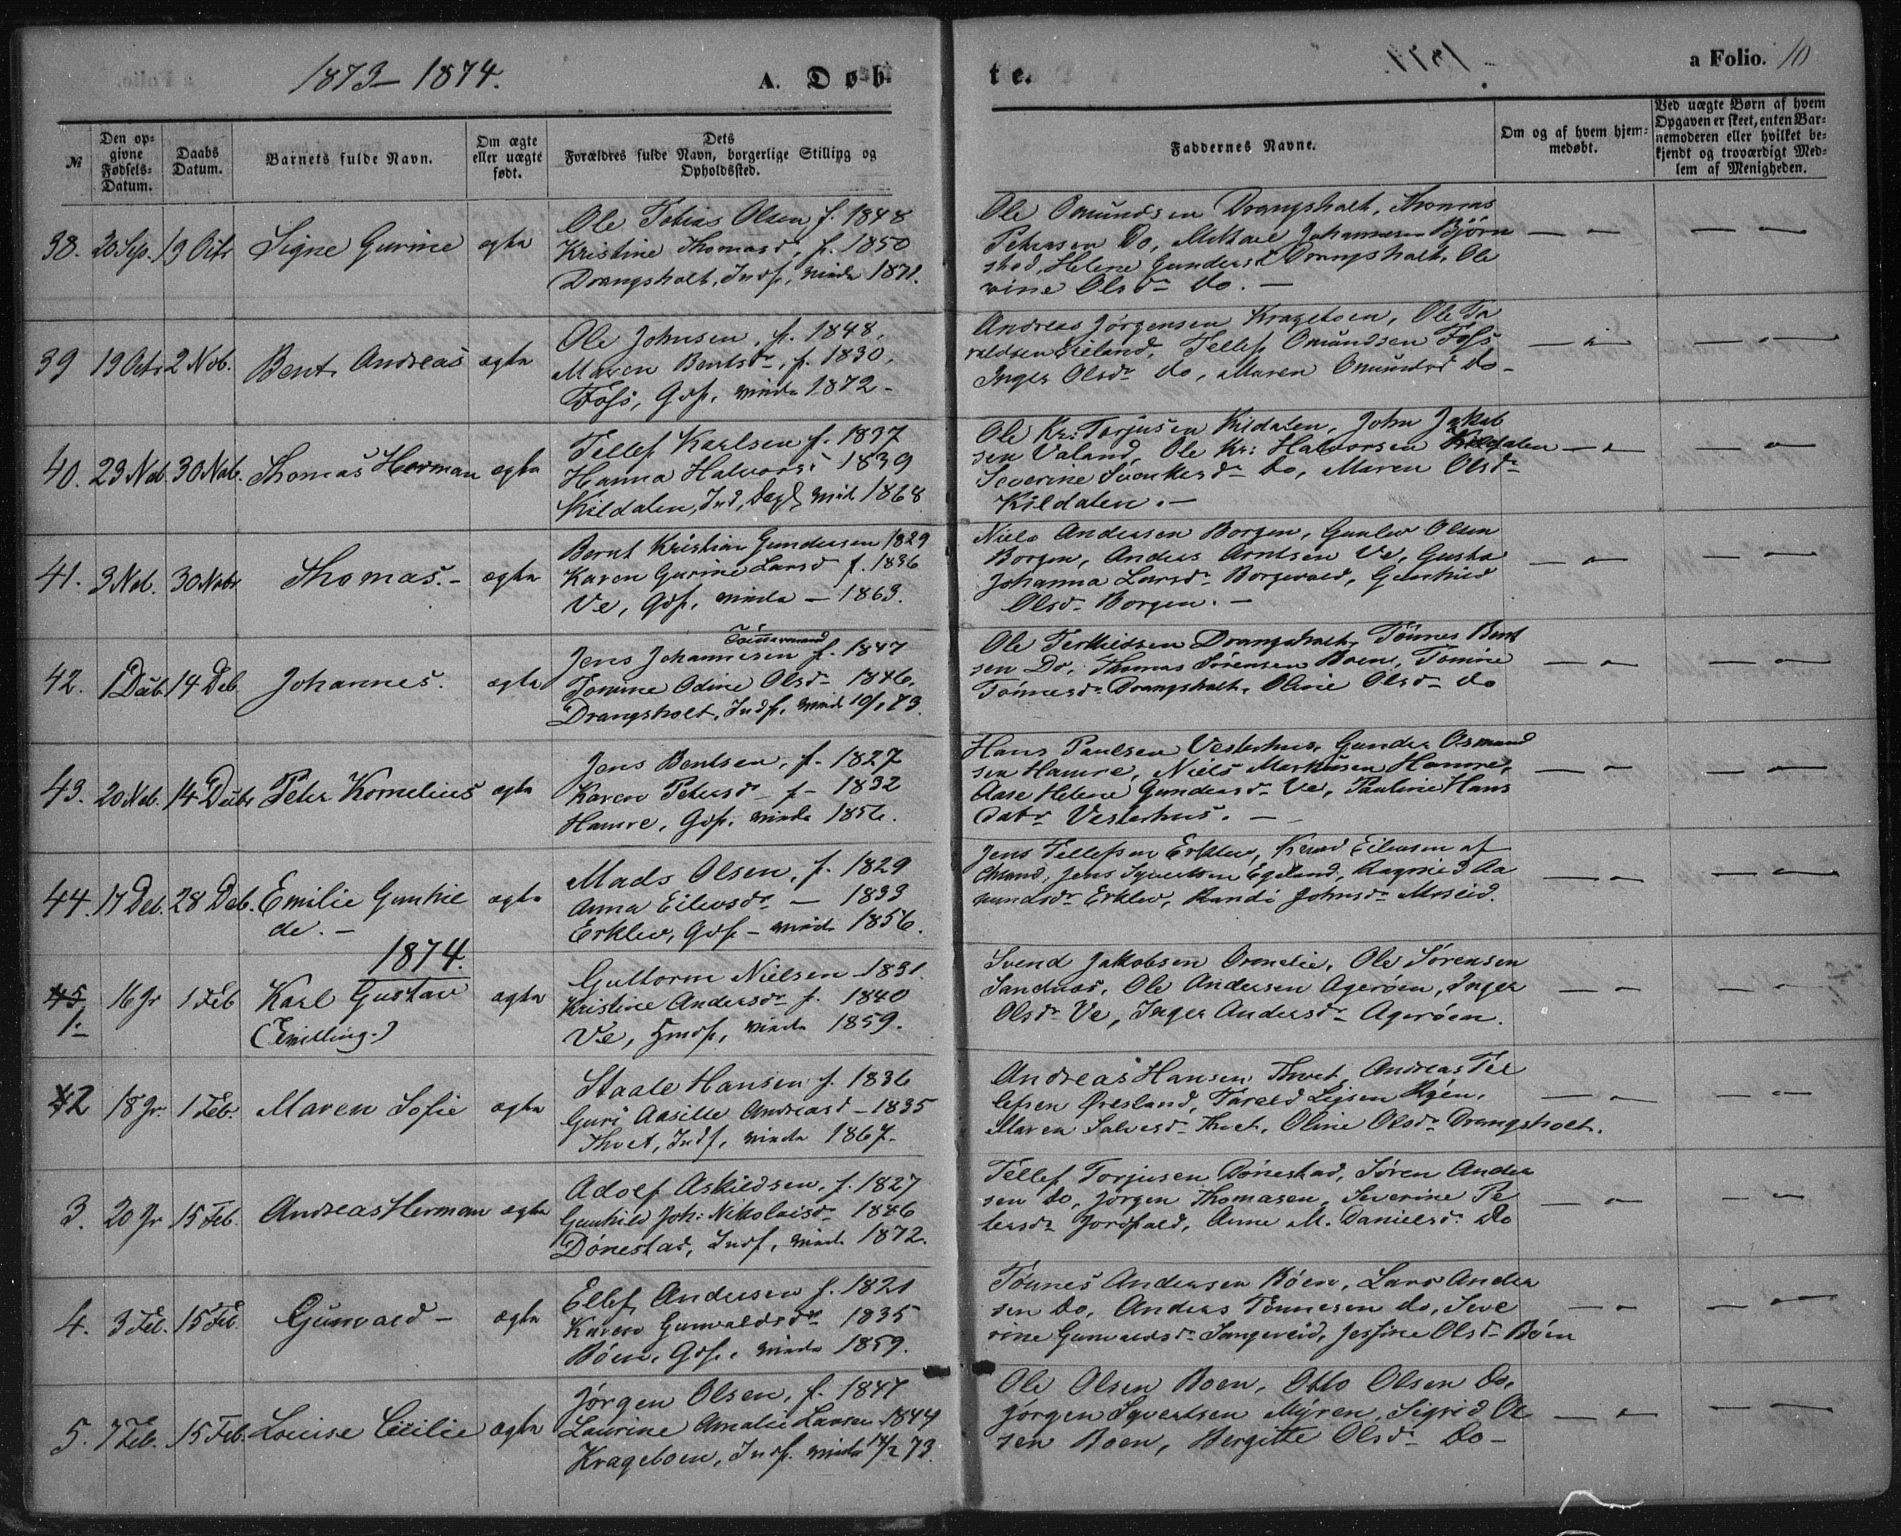 1873–1874.
A. Døb
te.
a Folio. 10
№
Den opgivne Fødsels-Datum.
Daabs Datum.
Barnets fulde Navn.
Om ægte eller uægte født.
Dets Forældres fulde Navn, borgerlige Stilling og Opholdssted.
Faddernes Navne.
Om og af hvem hjemmedøbt.
Ved uægte Børn af hvem Opgaven er skeet, enten Barnemoderen eller hvilket bekjendt og troværdigt Medlem af Menigheden.
38. 20 Sep. 19 Octr Signe Gurine ægte
Ole Tobias Olsen f. 1848
Kristine Thomasd. f. 1850
Drangsholt, Indf., viede 1871.
Ole Omundsen Drangsholt, Thomas
Petersen Do, Mikael Johannesen Bjørn
stad, Helene Gundersd Drangsholt, Ole
vine Olsdr do. —
39 19 Octr 2 Nob. Bent Andreas ægte
Ole Johnsen, f. 1848,
Maren Bentsdr, f. 1830,
Foss, Gdf, viede 1872 -
Andreas Jørgensen Krageboen, Ole Ta
raldsen Lieland, Tellef Omundsen Foss
Inger Olsdr do, Maren Omundsd do -
40. 23 Nob. 30 Nob. Thomas Herman ægte
Tellef Karlsen f. 1837
Hanna Halvors: 1839
Kildalen, Ind, Dagl, vied 1868
Ole Kr: Torjusen Kildalen, John Jakob
sen Valand, Ole Kr: Halvorsen Kildalen
Severine Svenkesdr do, Maren Olsdr
Kildalen. —
41. 3 Nob. 30 Nobr Thomas. - ægte
Bernt Kristian Gundersen 1829
Karen Gurine Larsd f. 1836
Ve, Gdf, viede — 1863.
Niels Andersen Borgen, Gunlev Olsen
Borgen, Anders Arntsen Ve, Gusta
Johanna Larsdr Borgevald, Gunhild
Olsdr Borgen. —
42. 1 Deb. 14 Deb. Johannes. ægte
Tømmermand
Jens Johannesen f. 1847
Tomine Odine Olsdr 1846,
Drangsholt, Indf, vied 10/1 73.
Ole Terkildsen Drangsholt, Tønnes Bent
sen Do, Thomas Sørensen Boen, Tomine
Tønnesdr Drangsholt, Oline Olsdr do
43. 20 Nob. 14 Debr Peter Kornelius ægte
Jens Bentsen, f. 1827
Karen Petersd — f — 1832
Hamre, Gdf, viede 1856.
Hans Paulsen Vesterhus, Gunder Osmund
sen Hamre, Niels Markusen Hamre,
Aase Helene Gundersdr Ve, Pauline Hans
datr Vesterhus. —
44. 17 Deb. 28 Deb. Emilie Gunhil
de. — ægte
Mads Olsen, f. 1829
Anna Eilevsdr — 1833
Erklev, Gdf — viede 1856.
Jens Tellefsen Erklev, Knud Eilevsen af
Chrsand, Jens Syvertsen Egeland, Ragnild Aa
nundsdr Erklev, Randi Johnsdr Moseid.
1874.
45 1. 16 Jr 1 Feb Karl Gustav
(Tvilling.) ægte
Guttorm Nielsen — 1831.
Kristine Andersdr f. 1840
Ve, Hmdf, viede 1859.
Svend Jakobsen Oronelie, Ole Sørensen
Sandnæs, Ole Andersen Agerøen, Inger
Olsdr Ve, Inger Andersdr Agerøen.
2 18 Jr. 1 Feb. Maren Sofie ægte
Staale Hansen f. 1836
Guri Aasille Andreasd — 1835
Thvet, Indf, viede 1867.
Andreas Hansen Thvet, Andreas Tel
lefsen Øresland, Tarald Lijsen Rÿen,
Maren Salvesdr Thvet, Oline Olsdr Drangsholt.
3. 20 Jr 15 Feb. Andreas Herman ægte
Adolf Askildsen, f. 1827
Gunhild Joh: Nikolaisdr 1846
Dønestad, Indf, viede 1872.
Tellef Torjusen Dønestad, Søren Ander
sen do, Jørgen Thomasen, Severine Pe
tersdr Jordfald, Anne M. Danielsdr do
4. 3 Feb. 15 Feb. Gunvald — ægte
Ellef Andersen f. 1821
Karen Gunvaldsdr 1835
Bøen, Gdf, viede 1859.
Tønnes Andersen Bøen, Lars Ander
sen do, Anders Tønnesen do, Seve
rine Gunvaldsdr Langeveid, Jessine Olsdr Bøen
5. 7 Feb. 15 Feb. Louise Cecilie ægte
Jørgen Olsen, f. 1847
Laurine Amalie Larsen 1844
Krageboen, Indf. viede 14/2 73.
Ole Olsen Boen, Otto Olsen Do,
Jørgen Syvertsen Mÿren, Sigrid Ol
sen Boen, Bergitte Olsdr Do -